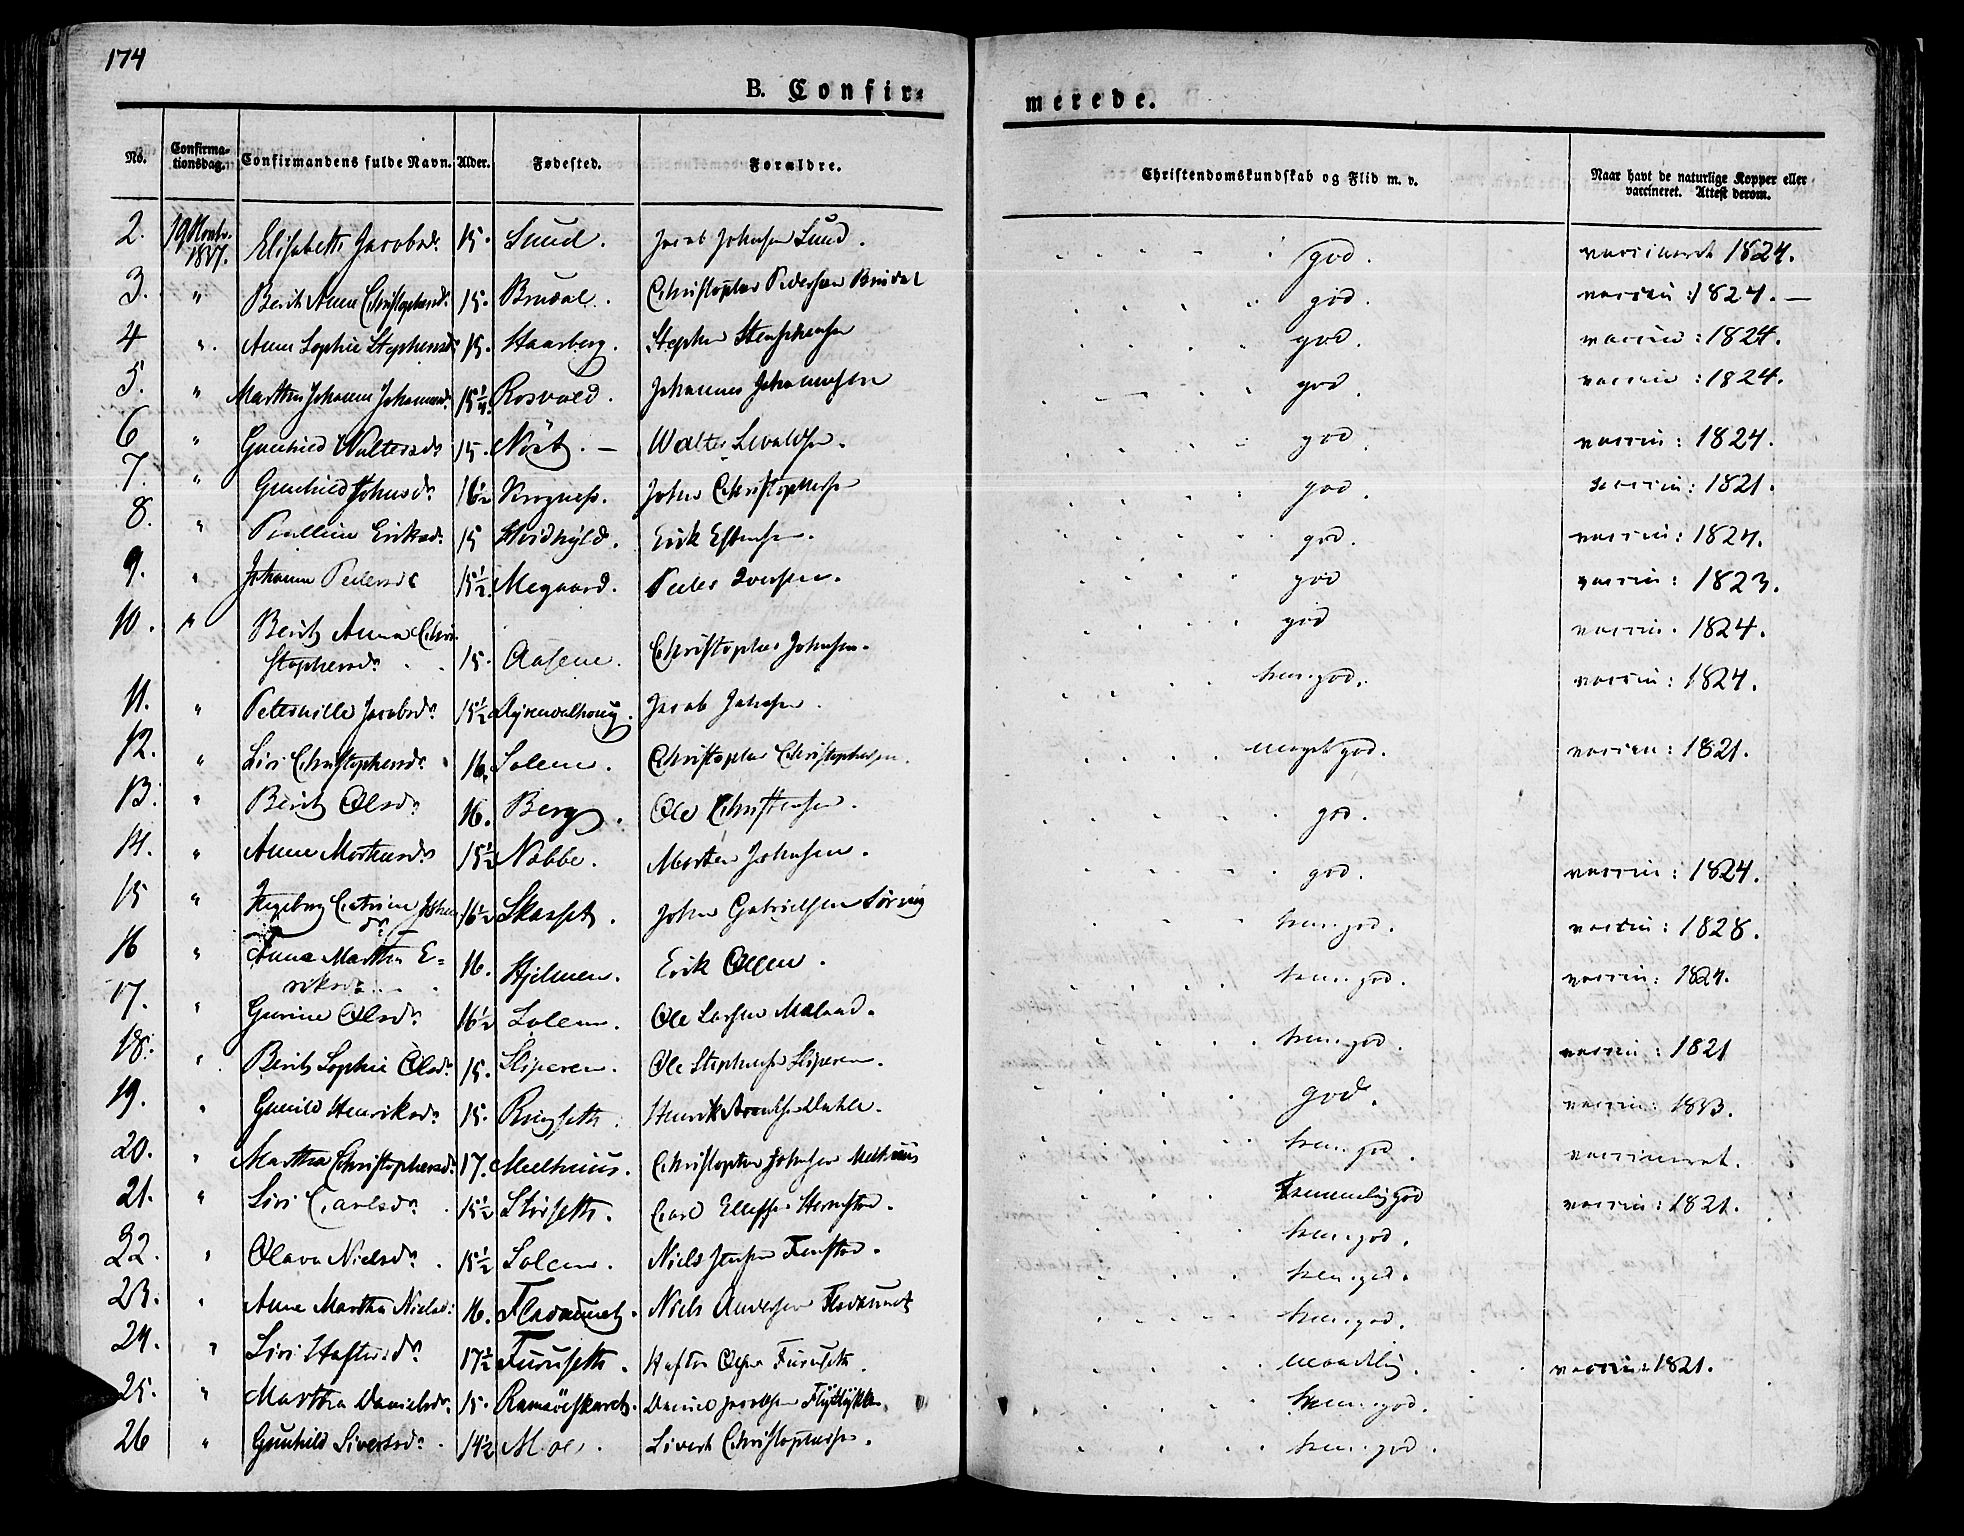 174
B. Confir=
merede.
No. Confirma-tionsdag. Confirmandens fulde Navn. Alder. Fødested. Forældre. Christendomskundskab og Flid m. v. Naar havt de naturlige Kopper eller vaccineret. Attest derom.
2. 19 Novbr. 1837. Elisabeth Jacobsdr 15. Lund. Jacob Johnsen Lund. god. vaccineret 1824.
3. " Berit Anne Christophersdr 15. Brudal. Christopher Pedersen Brudal god. vaccin: 1824. —
4 " Anne Sophie Stephensdr 15. Haarberg. Stephen Stephensen god. vaccin: 1824.
5. " Marthe Johanne Johannesdr 15¼ Rosvold. Johannes Johannesen god. vaccin: 1824.
6 " Gunhild Waltersdr 15. Nöst. — Walter Sivaldsen. god vaccin: 1824.
7. " Gunhild Johnsdr 16½ John Christophersen god. vaccin: 1821.
8. " Eriksdr 15 Erik Estensen. god. vaccin: 1824.
9. " Johanna Pedersdr 15½ Megaard. Peder Iversen. god vaccin: 1823.
10. " Berit Anna Chri-
stophersdr 15. Aasene. Christopher Johnsen. god vaccin. 1824.
11. " Peternille Jacobsdr 15½ Jacob Johnsen. tem. god. vaccin: 1824.
12. " Siri Christophersdr 16. Solem. Christopher Christophersen. meget god. vaccin: 1821.
13. " Berit Olsdr 16. Berg. Ole Christensen. god.
14. " Anne Mortensdr 15½ Nobbe. Morten Johnsen. god. vaccin: 1824.
15 " Ingeborg Catrine Johns
dr 16½ Skasset. John Gabrielsen tem. god. vaccin: 1828.
16 " Anna Martha E=
riksdr 16. Hjelmen. Erik Olsen. tem. god. vaccin: 1824.
17. " Gurine Olsdr 16½ Solem. Ole Larsen tem. god. vaccin: 1821
18. " Berit Sophie Olsdr 15. Sliperen. Ole Stephensen Sliperen. god. vaccin: 1833.
19. " Gunild Henriksdr 15. Ringseth. Henrik Arntsen Dahle. tem. god. vaccineret.
20. " Martha Christophersdr 17. Melhuus. Christopher Johnsen Melhuus Temmelig god vaccin: 1821.
21. " Siri Carlsdr 15½ Storseth. Carl Ellefsen tem. god.
22. " Olava Nielsdr 15½ Solem. Niels Jensen tem. god.
23. " Anne Martha Nielsd: 16. Niels Andersen tem. god.
24. " Siri Haftorsdr 17½ Furuseth. Haftor Olsen Furuseth. maadelig. vaccin: 1821.
25. " Martha Danielsdr 15. Ramsöeskaret. Daniel Jacobsen tem. god.
26 " Gunhild Sivertsdr 14½ Moe. Sivert Christophersen. tem. god.